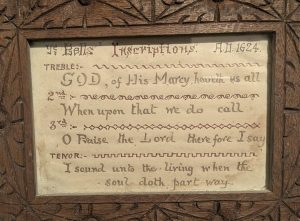 Ye Bells' Inscriptions. A.D. 1624.
TREBLE:-
GOD, of His Mercy heareth us all
2nd:-
When upon that we do call
3rd:-
O Praise the Lord therefore I say
TENOR:-
I sound unto the living when the
soul doth part way.